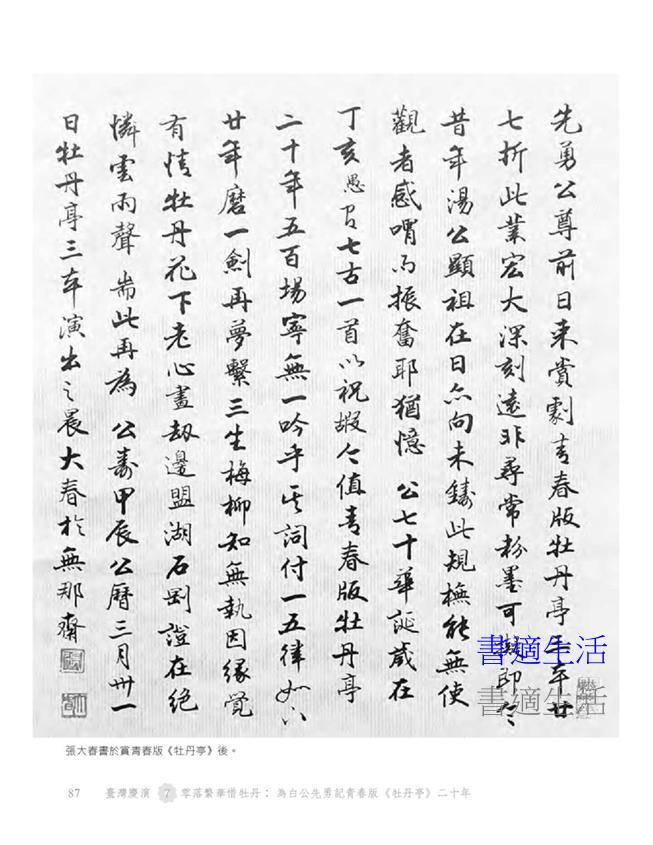 先勇公尊前日来賞劇青春版牡丹亭三本廿
七折此業宏大深刻遠非尋常粉墨可擬即令
昔年湯公顯祖在日亦向未鑄此規橅能無使
觀者感喟而振奮耶猶憶 公七十華誕歲在
丁亥愚占七古一首以祝嘏今值青春版牡丹亭
二十年五百場寧無一吟乎其詞付一五律如下
廿年磨一劍再夢繫三生梅柳知無執因緣覺
有情牡丹花下老心畫劫邊盟湖石證在絕
憐雲雨聲耑此再為 公壽甲辰公曆三月卅一
日牡丹亭三本演出之晨大春於無那齋
書適生活
書適生活
張大春書於賞青春版《牡丹亭》後。
87 臺灣慶演 7 零落繫華惜牡丹：為白公先勇記青春版《牡丹亭》二十年